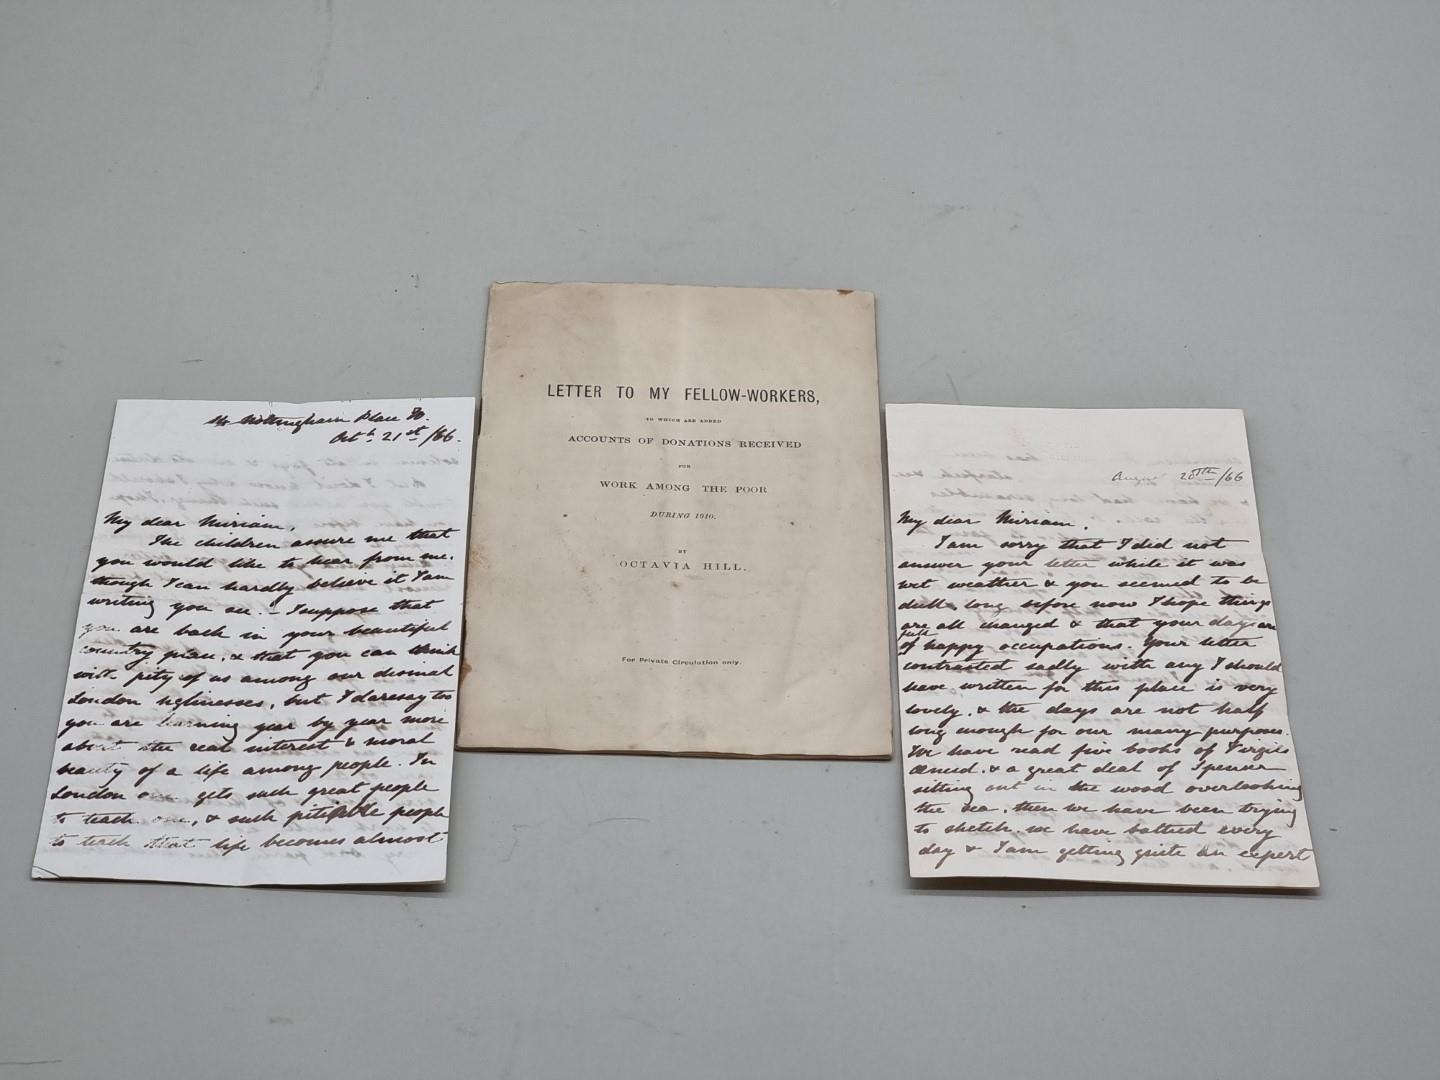 Nottingham Place W.
Octb 21st/66.
My dear Miriam,
The children assure me that
you would like to hear from me.
though I can hardly believe it I am
writing you see. – I suppose that
you are back in your beautiful
country place, & that you can think
with pity of us among our dismal
London uglinesses, but I daresay too
you are learning year by year more
about the real interest & moral
beauty of a life among people. In
London one gets such great people
to teach one, & such pitiable people
to teach that life becomes almost
LETTER TO MY FELLOW-WORKERS,
TO WHICH ARE ADDED
ACCOUNTS OF DONATIONS RECEIVED
FOR
WORK AMONG THE POOR
DURING 1910.
BY
OCTAVIA HILL.
For Private Circulation only.
August 20TH/66
My dear Miriam,
I am sorry that I did not
answer your letter while it was
wet weather & you seemed to be
dull, long before now I hope things
are all changed & that your days are
full
of happy occupations. Your letter
contrasted sadly with any I should
have written for this place is very
lovely, & the days are not half
long enough for our many purposes.
We have read five books of Vergils
Æneid, & a great deal of Spenser
sitting out in the wood overlooking
the sea, then we have been trying
to sketch, we have bathed every
day & I am getting quite an expert